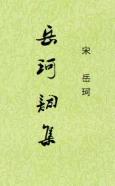 宋 岳珂
岳珂詞集